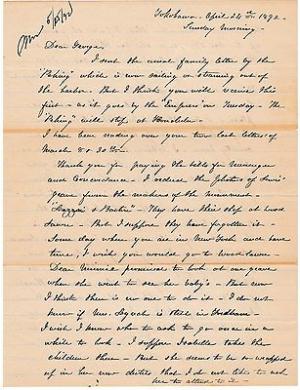 Yokohama. April 24th 1892.
Sunday Morning.
Dear George,
I sent the usual family letter by the
"Peking" which is now sailing or steaming out of
the harbor. But I think you will receive this
first - as it goes by the "Empress" on Tuesday - The
"Peking" will stop at Honolulu -
I have been reading over your two last letters of
March 8 & 20th.
Thank you for paying the bills for
and Concordance - I ordered the photos of
grave from the makers of the monument -
" & " - They have their shop at Wood
lawn - But I suppose they have forgotten it -
Some day when you are in New York and have
time, I wish you would go to Woodlawn -
Dear Minnie promised to look at our grave
when she went to see her baby's - But now
I think there is no one to do it - I do not
know if Mrs. is still in
I wish I knew who to ask to go once in a
while to look - I suppose Isabella takes the
children there - But she seems to be so wrapped
up in her own that I do not like to ask
her to attend to it -